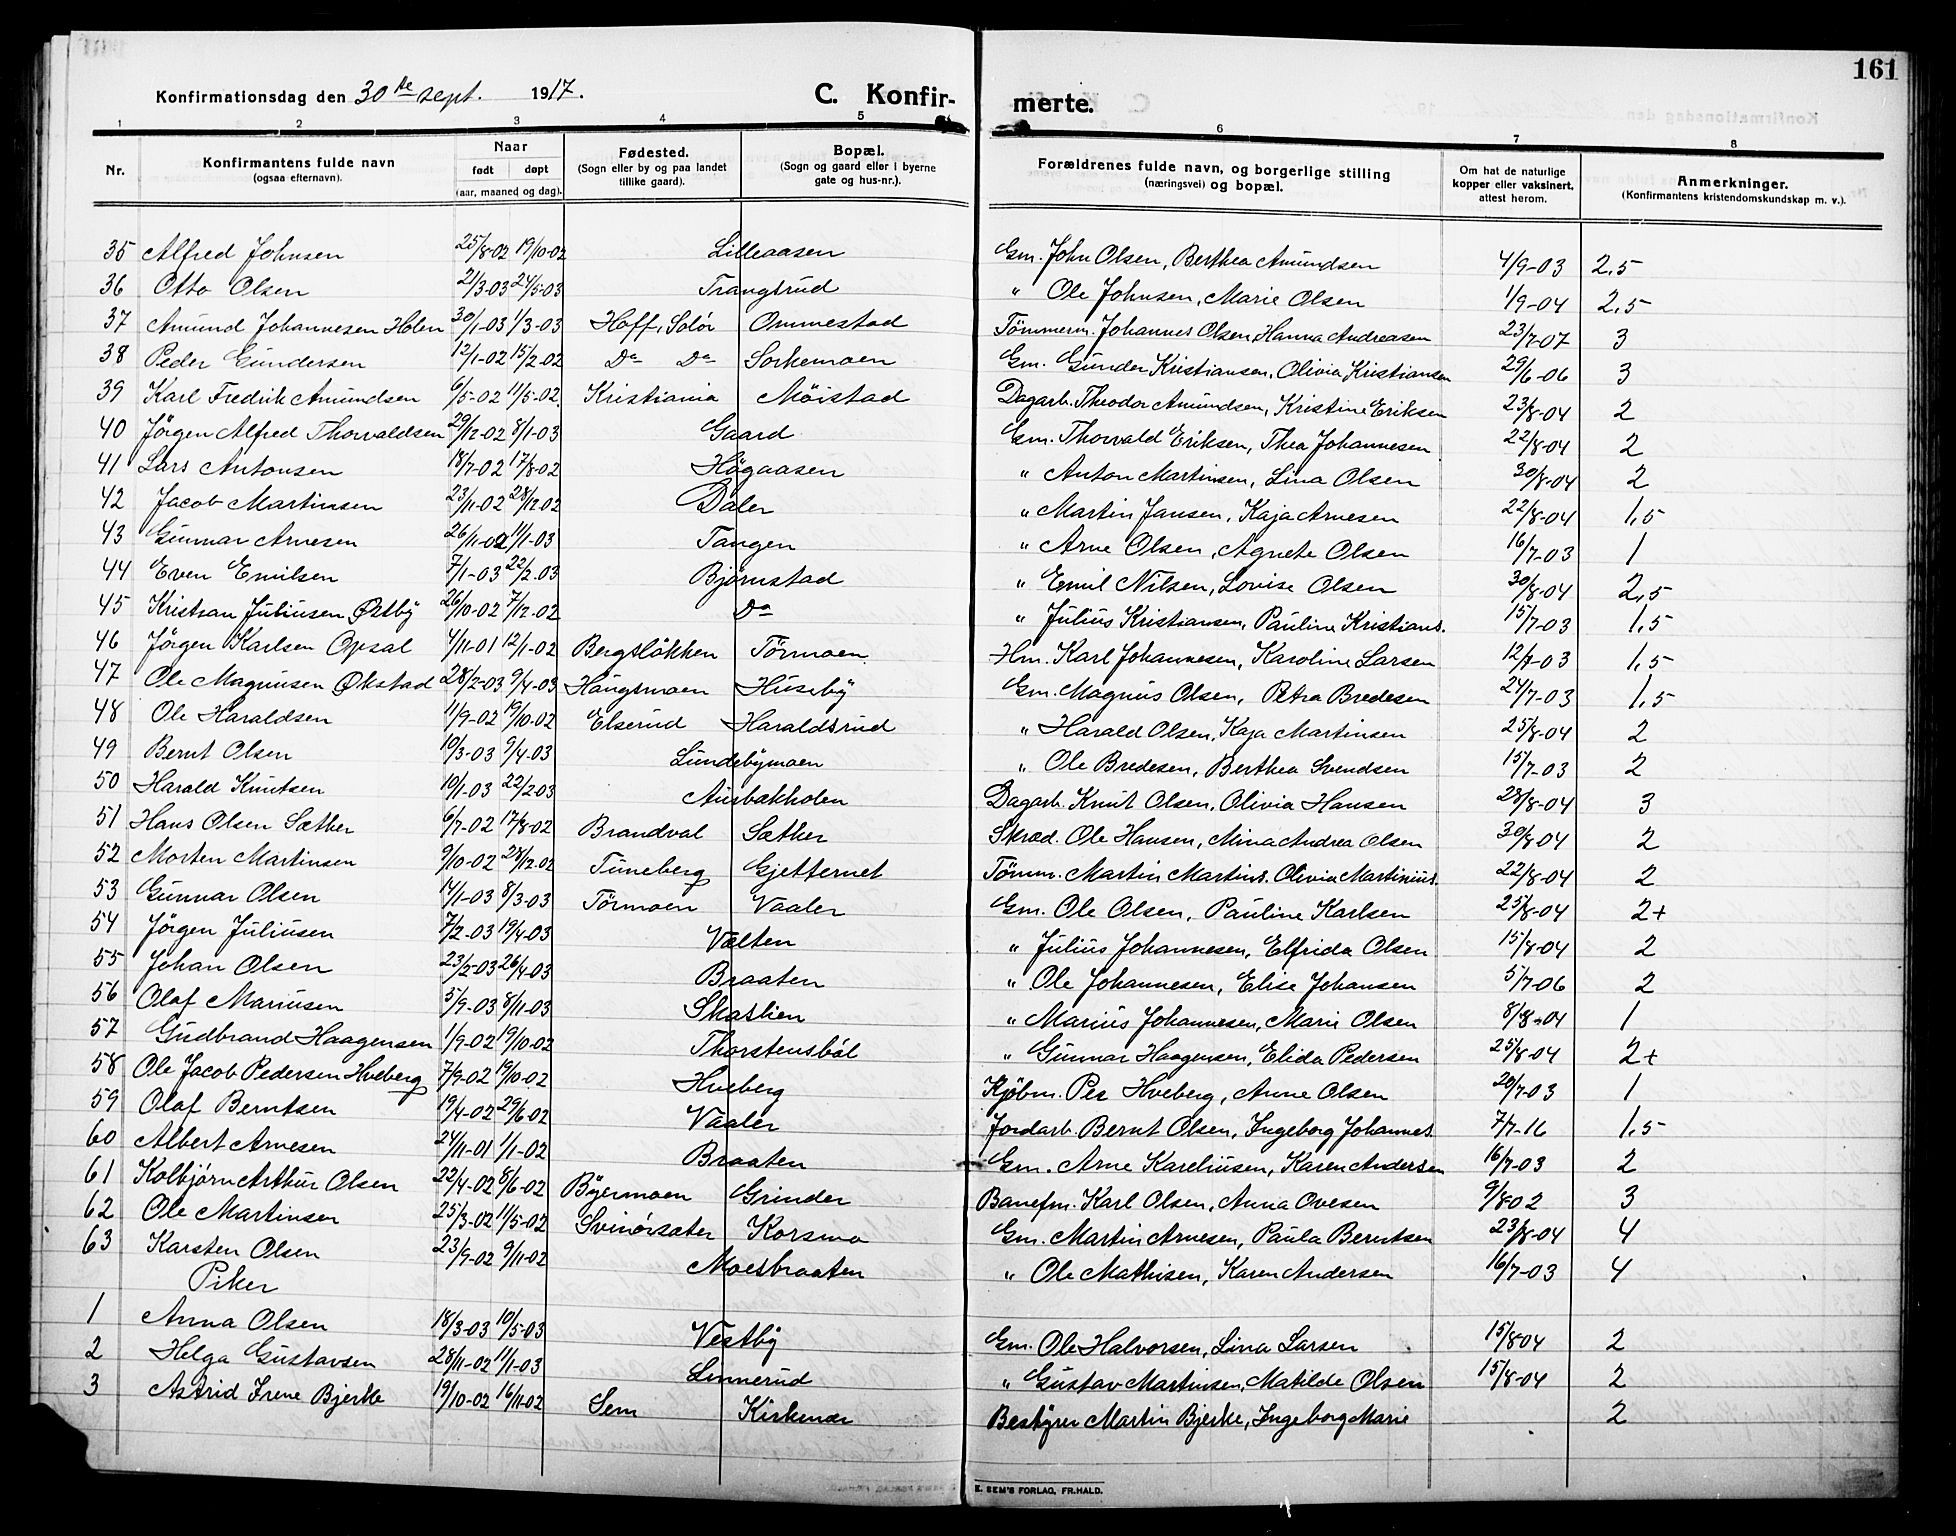 161
Konfirmationsdag den 30te sept. 1917. C. Konfir- merte.
1 2 3 4 5 6 7 8
Nr. Konfirmantens fulde navn (ogsaa efternavn). Naar født døpt (aar, maaned og dag). Fødested. (Sogn eller by og paa landet tillike gaard). Bopæl. (Sogn og gaard eller i byerne gate og hus-nr.). Forældrenes fulde navn, og borgerlige stilling (næringsvei) og bopæl. Om hat de naturlige kopper eller vaksinert, attest herom. Anmerkninger. (Konfirmantens kristendomskundskap m. v.).
35 Alfred Johnsen 25/8-02 19/10-02 Lilleaasen Gm. John Olsen, Berthea Amundsen 4/9-03 2,5
36 Otto Olsen 21/3-03 24/5-03 Trangsrud " Ole Johnsen, Marie Olsen 1/9-04 2,5
37 Amund Johannesen Holen 30/1-03 1/3-03 Hoff, Solör Ommestad Tömmerm. Johannes Olsen, Hanna Andreasen 23/7-07 3
38 Peder Gundersen 12/1-02 15/2-02 Do Do Sorkemoen Gm. Gunder Kristiansen, Olivia Kristiansen 29/6-06 3
39 Karl Fredrik Amundsen 6/5-02 11/5-02. Kristiania Möistad Dagarb. Theodor Amundsen, Kristine Eriksen 23/8-04 2
40 Jörgen Alfred Thorvaldsen 29/12-02 8/1-03 Gaard Gm. Thorvald Eriksen, Thea Johannesen 22/8-04 2
41 Lars Antonsen 18/7-02 17/8-02 Högaasen " Anton Martinsen, Lina Olsen 30/8-04 2
42 Jacob Martinsen 23/11-02 28/12-02 Daler " Martin Jansen, Kaja Arnesen 22/8-04 1,5
43 Gunnar Arnesen 26/11-02 11/1-03 Tangen " Arne Olsen, Agnete Olsen 16/7-03 1
44 Even Emilsen 7/1-03 22/2-03 Björnstad " Emil Nilsen, Lovise Olsen 30/8-04 2,5
45 Kristian Juliusen Østby 26/10-02 7/12-02 Do " Julius Kristiansen, Pauline Kristians. 15/7-03 1,5
46 Jörgen Karlsen Opsal 4/11-01 12/1-02 Bergslökken Törmoen Hm. Karl Johannesen, Karoline Larsen 12/7-03 1,5
47 Ole Magnusen Økstad 28/2-03 9/4-03 Haugsmoen Huseby Gm. Magnus Olsen, Petra Bredesen 24/7-03 1,5
48 Ole Haraldsen 11/9-02 19/10-02 Elserud Haraldsrud " Harald Olsen, Kaja Martinsen 25/8-04 2
49 Bernt Olsen 19/3-03 9/4-03 Lundebymoen " Ole Bredesen, Berthea Svendsen 15/7-03 2
50 Harald Knutsen 10/1-03 22/2-03 Ausbakholen Dagarb. Knut Olsen, Olivia Hansen 28/8-04 3
51 Hans Olsen Sæther 6/7-02 17/8-02 Brandval Sæther Skræd. Ole Hansen, Mina Andrea Olsen 30/8-04 2
52 Morten Martinsen 9/10-02 28/12-02 Tuneberg Gjetternet Tömm. Martin Martins. Olivia Martinius. 22/8-04 2
53 Gunnar Olsen 14/1-03 8/3-03 Törmoen Vaaler Gm. Ole Olsen, Pauline Karlsen 25/8-04 2+
54 Jörgen Juliusen 7/2-03 19/4-03 Vælten " Julius Johannesen, Elfrida Olsen 15/8-04 2
55 Johan Olsen 23/2-03 26/4-03 Braaten " Ole Johannesen, Elise Johansen 5/7-06 2
56 Olaf Mariusen 5/9-03 8/11-03 Skaslien " Marius Johannesen, Marie Olsen 8/8-04 1
57 Gudbrand Haagensen 1/9-02 19/10-02 Thorstensböl " Gunnar Haagensen, Elida Pedersen 25/8-04 2+
58 Ole Jacob Pedersen Hveberg 7/9-02 19/10-02 Hveberg Kjöbm. Per Hveberg, Anne Olsen 20/7-03 1
59 Olaf Berntsen 19/4-02 29/6-02 Vaaler Jordarb. Bernt Olsen, Ingeborg Johannes. 7/7-16 1,5
60 Albert Arnesen 24/11-01 1/1-02 Braaten Gm. Arne Kareliusen, Karen Andersen 16/7-03 2
61 Kolbjörn Arthur Olsen 22/4-02 8/6-02 Byermoen Grinder Banefm. Karl Olsen, Anna Ovesen 9/802 3
62 Ole Martinsen 25/3-02 11/5-02 Svinörsæter Korsmo Gm. Martin Arnesen, Paula Berntsen 23/8-04 4
63 Karsten Olsen 23/9-02 9/11-02 Moesbraaten " Ole Mathisen, Karen Andersen 16/7-03 4
Piker
1 Anna Olsen 18/3-03 10/5-03 Vestby Gm. Ole Halvorsen, Lina Larsen 15/804 2
2 Helga Gustavsen 28/11-02 11/1-03 Linnerud " Gustav Martinsen, Matilde Olsen 15/8-04 2
3 Astrid Irene Bjerke 19/10-02 16/11-02 Sem Kirkenær Bestyrer Martin Bjerke, Ingeborg Marie 2
E. SEM'S FORLAG, FR.HALD.